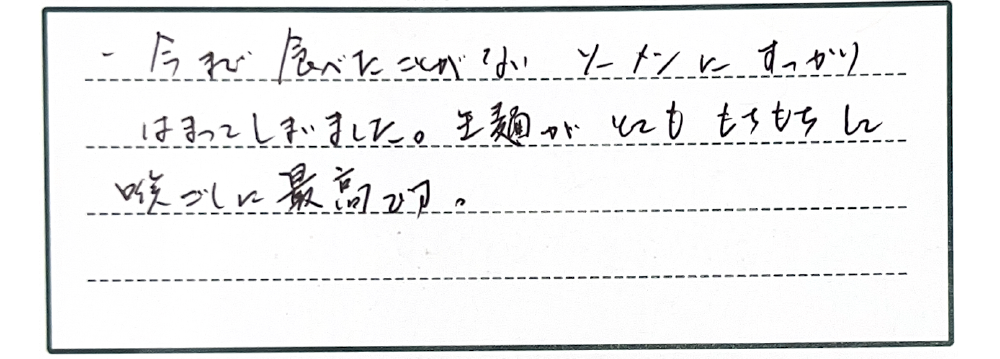 - 今まで食べたことがないソーメンにすっかり
はまってしまいました。生麺がとてももちもちして
喉ごしに最高です。